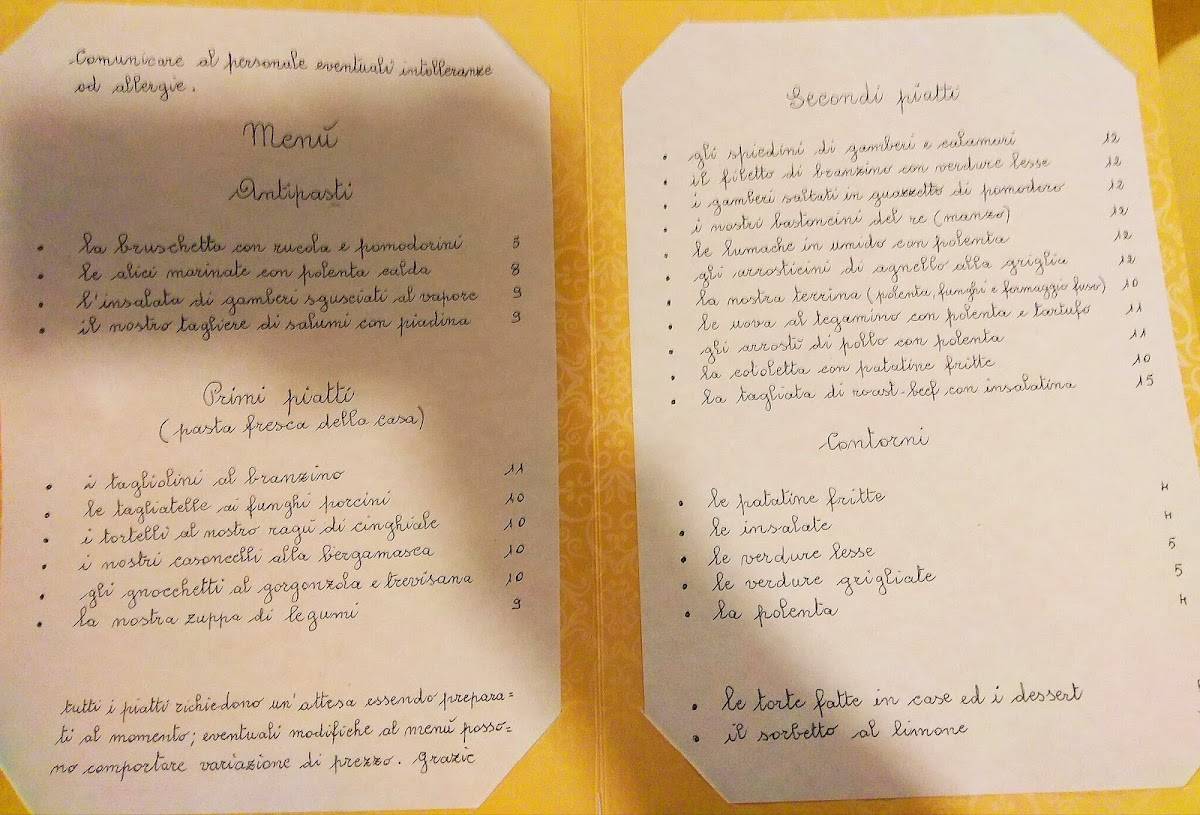 Comunicare al personale eventuali intolleranze
od allergie.
Menú
Antipasti
• la bruschetta con rucola e pomodorini 5
• le alici marinate con polenta calda 8
• l'insalata di gamberi sgusciati al vapore 9
• il nostro tagliere di salumi con piadina 9
Primi piatti
(pasta fresca della casa)
• i tagliolini al branzino 11
• le tagliatelle ai funghi porcini 10
• i tortelli al nostro ragú di cinghiale 10
• i nostri casoncelli alla bergamasca 10
• gli gnocchetti al gorgonzola e trevisana 10
• la nostra zuppa di legumi 9
tutti i piatti richiedono un'attesa essendo prepara=
ti al momento; eventuali modifiche al menú posso=
no comportare variazione di prezzo. Grazie
Secondi piatti
• gli spiedini di gamberi e calamari 12
• il filetto di branzino con verdure lesse 12
• i gamberi saltati in guazzetto di pomodoro 12
• i nostri bastoncini del re (manzo) 12
• le lumache in umido con polenta 12
• gli arrosticini di agnello alla griglia 12
• la nostra terrina (polenta, funghi e formaggio fuso) 10
• le uova al tegamino con polenta e tartufo 11
• gli arrosti di pollo con polenta 11
• la cotoletta con patatine fritte 10
• la tagliata di roast-beef con insalatina 15
Contorni
• le patatine fritte 4
• le insalate 4
• le verdure lesse 5
• le verdure grigliate 5
• la polenta 4
• le torte fatte in case ed i dessert
• il sorbetto al limone